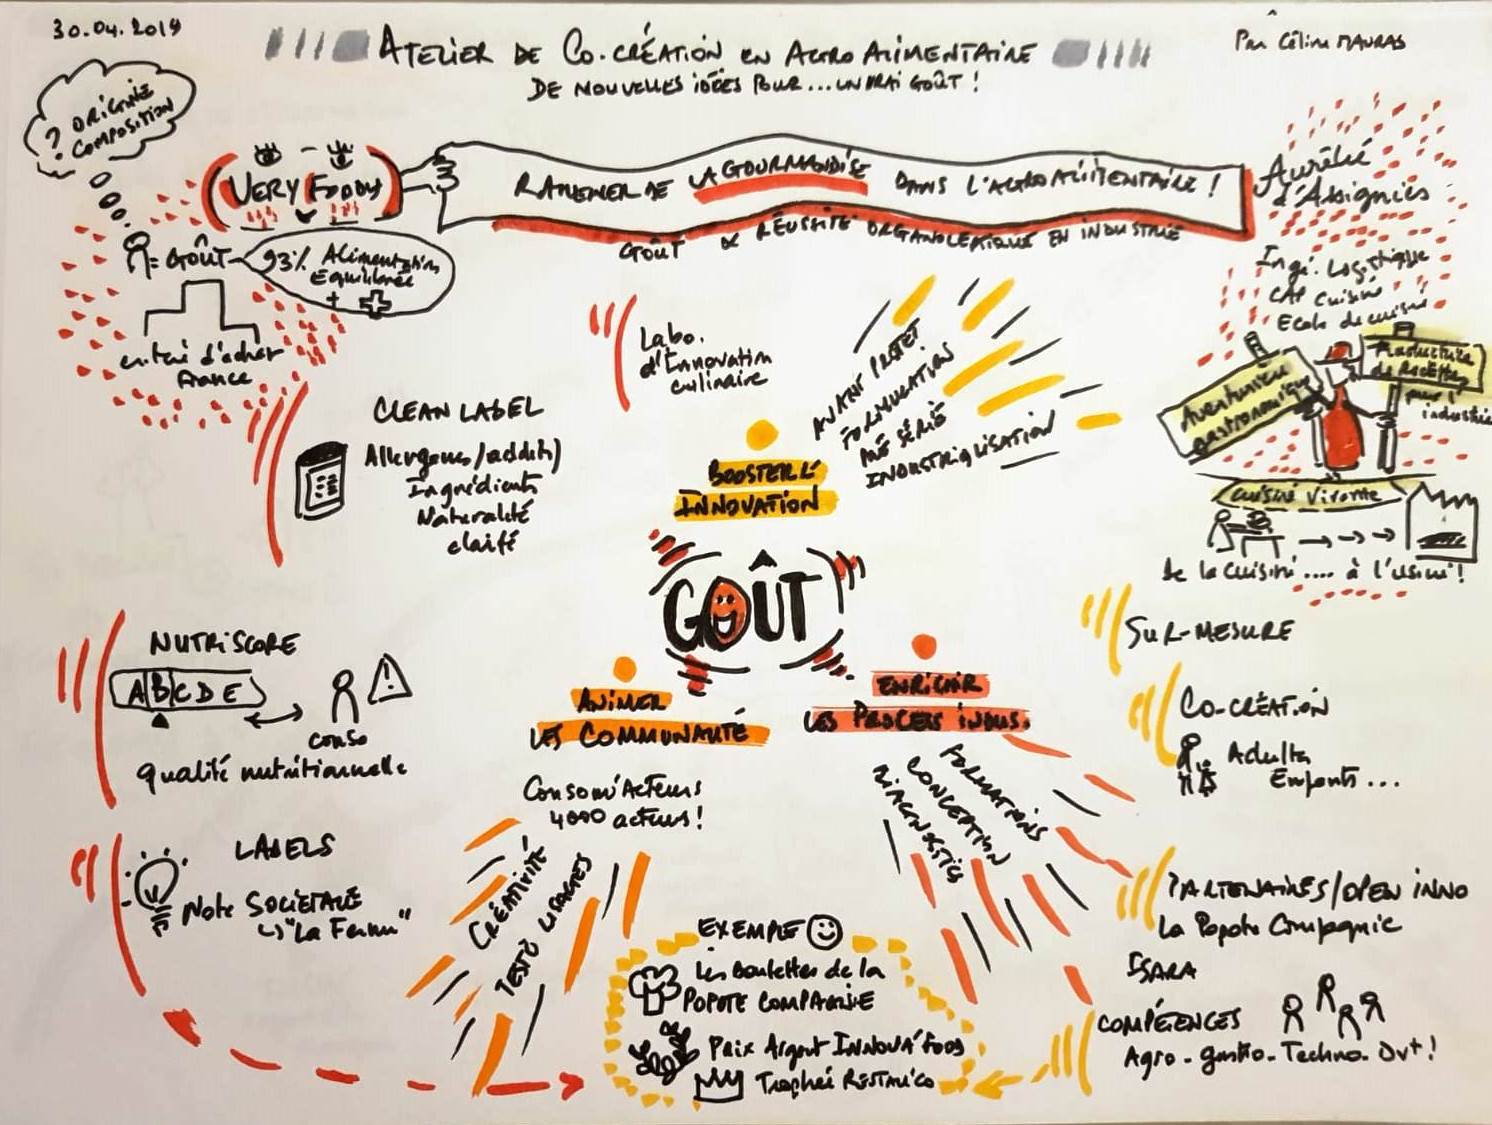 30.04.2019
ATELIER DE CO-CRÉATION EN AGRO ALIMENTAIRE
DE NOUVELLES IDÉES POUR... UN VRAI GOÛT !
Par Céline MAURAS
? ORIGINE
COMPOSITION
VERY FOODY
RAMENER DE LA GOURMANDISE DANS L'AGROALIMENTAIRE !
GOÛT & RÉUSSITE ORGANOLEPTIQUE EN INDUSTRIE
= GOÛT
93% Alimentation
Equilibrée
+
critère d'achat
France
Aurélie
d'Assignies
Ingé. Logistique
CAP Cuisine
Ecole de cuisine
Aventurière
gastronomique
Traductrice
de Recettes
pour l'
industrie
Cuisine Vivante
de la cuisine .... à l'usine !
Labo.
d'Innovation
culinaire
AVANT PROJET
FORMULATION
PRÉ SÉRIE
INDUSTRIALISATION
BOOSTER L'
INNOVATION
CLEAN LABEL
Allergènes/additifs
Ingrédients
Naturalité
clarté
GOÛT
NUTRISCORE
A B C D E
conso
qualité nutritionnelle
ANIMER
LES COMMUNAUTÉ
Consom'Acteurs
4000 acteurs !
CRÉATIVITÉ
TESTS USAGES
ENRICHIR
LES PROCESS INDUS.
FORMATIONS
CONCEPTION
DIAGNOSTICS
SUR-MESURE
CO-CRÉATION
Adultes
Enfants ...
LABELS
Note SOCIÉTALE
"La Ferme"
PARTENAIRES/OPEN INNO
La Popote Compagnie
ISARA
COMPÉTENCES
Agro - gastro - Techno - Dvt !
EXEMPLE
Les Boulettes de la
POPOTE COMPAGNIE
Prix Argent INNOVA'FOOD
Trophée RESTAU'CO